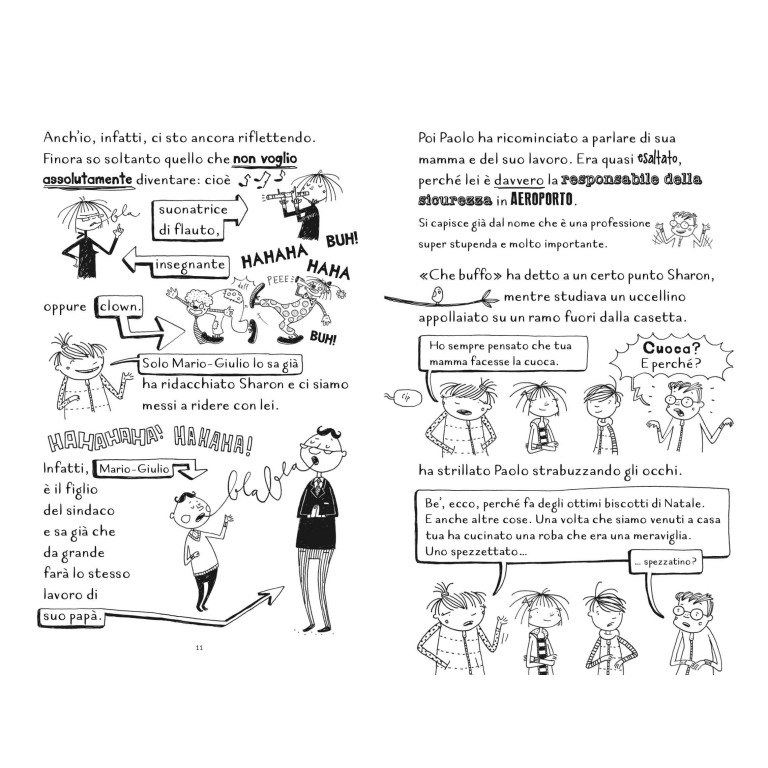 Anch'io, infatti, ci sto ancora riflettendo.
Finora so soltanto quello che non voglio
assolutamente diventare: cioè
bla
suonatrice
di flauto,
BUH!
insegnante
HAHAHA
HAHA
PEEE!
oppure clown.
BUH!
Solo Mario-Giulio lo sa già
ha ridacchiato Sharon e ci siamo
messi a ridere con lei.
HAHAHAHA! HAHAHA!
Infatti, Mario-Giulio
è il figlio
del sindaco
e sa già che
da grande
farà lo stesso
lavoro di
suo papà.
blabla
11
Poi Paolo ha ricominciato a parlare di sua
mamma e del suo lavoro. Era quasi esaltato,
perché lei è davvero la responsabile della
sicurezza in AEROPORTO.
Si capisce già dal nome che è una professione
super stupenda e molto importante.
«Che buffo» ha detto a un certo punto Sharon,
mentre studiava un uccellino
appollaiato su un ramo fuori dalla casetta.
Ho sempre pensato che tua
mamma facesse la cuoca.
Cuoca?
E perché?
Cip
ha strillato Paolo strabuzzando gli occhi.
Be', ecco, perché fa degli ottimi biscotti di Natale.
E anche altre cose. Una volta che siamo venuti a casa
tua ha cucinato una roba che era una meraviglia.
Uno spezzettato...
... spezzatino?